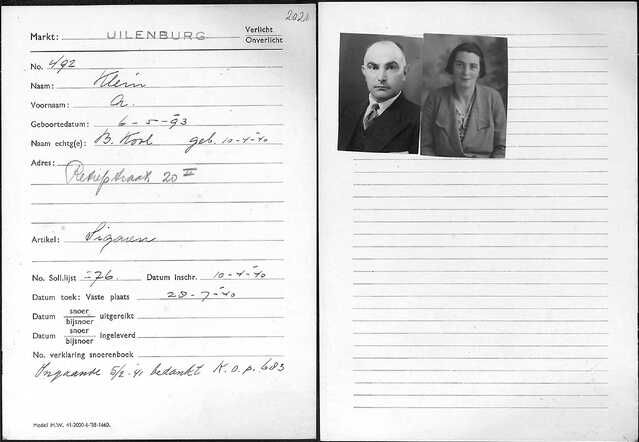 2020
Markt: UILENBURG Verlicht
Onverlicht
No. 4/92
Naam: Klein
Voornaam: A.
Geboortedatum: 6-5-'93
Naam echtg(e): B. Kool geb. 10-4-'40
Adres: Retiefstraat 20 II
Artikel: Sigaren
No. Soll.lijst 76. Datum Inschr. 10-4-'40
Datum toek: Vaste plaats 28-7-'40
Datum snoer
bijsnoer uitgereikt
Datum snoer
bijsnoer ingeleverd
No. verklaring snoerenboek
Ingaande 5/2-'41 bedankt K.O.p. 683
Model M.W.